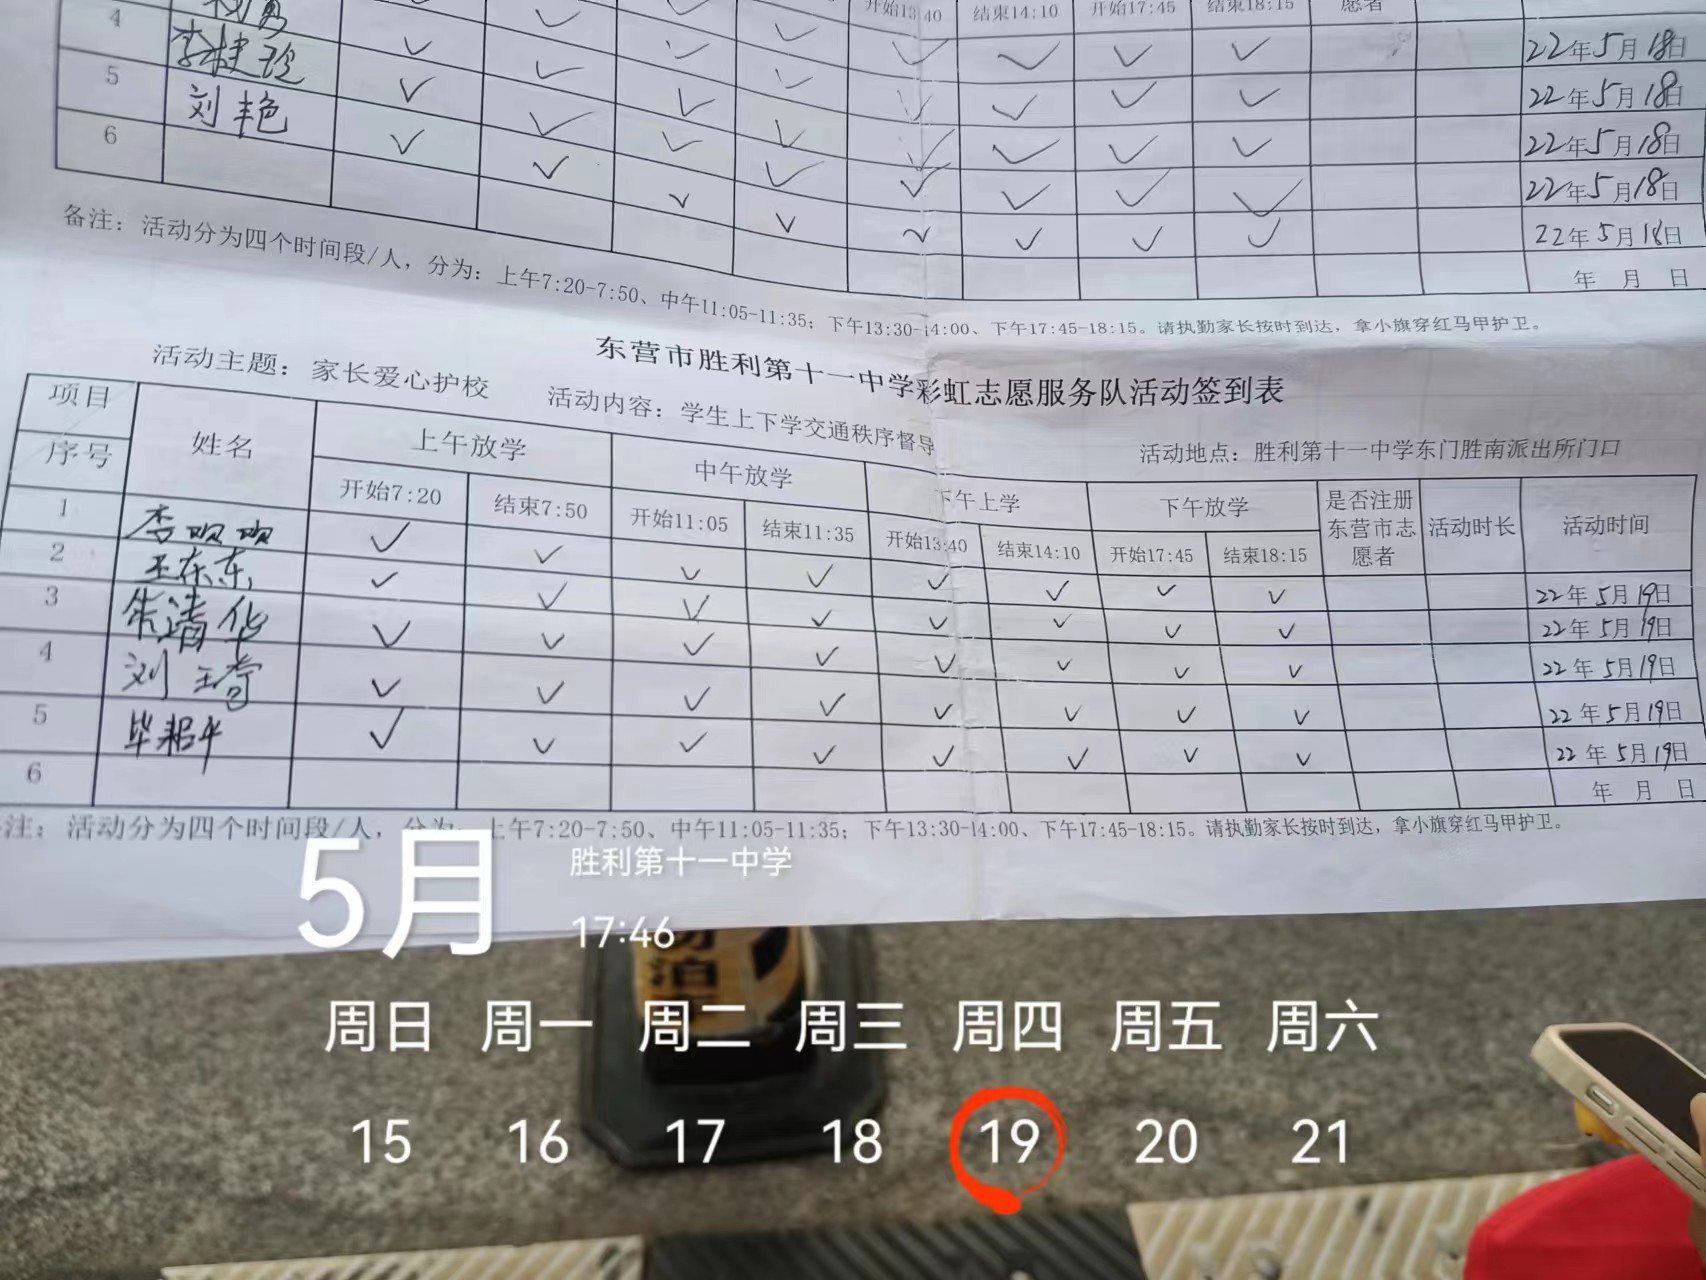 开始13:40 结束14:10 开始17:45 结束18:15 愿者
4 ✓ ✓ ✓ ✓ ✓ ✓ ✓ ✓ 22年5月18日
5 李捷玲 ✓ ✓ ✓ ✓ ✓ ✓ ✓ ✓ 22年5月18日
6 刘艳 ✓ ✓ ✓ ✓ ✓ ✓ ✓ ✓ 22年5月18日
✓ ✓ ✓ ✓ ✓ ✓ ✓ ✓ 22年5月18日
22年5月18日
年 月 日
备注：活动分为四个时间段/人，分为：上午7:20-7:50、中午11:05-11:35；下午13:30-14:00、下午17:45-18:15。请执勤家长按时到达，拿小旗穿红马甲护卫。
东营市胜利第十一中学彩虹志愿服务队活动签到表
活动主题：家长爱心护校 活动内容：学生上下学交通秩序督导 活动地点：胜利第十一中学东门胜南派出所门口
项目 姓名 上午放学 中午放学 下午上学 下午放学 是否注册东营市志愿者 活动时长 活动时间
序号 开始7:20 结束7:50 开始11:05 结束11:35 开始13:40 结束14:10 开始17:45 结束18:15
1 李 ✓ ✓ ✓ ✓ ✓ ✓ ✓ ✓ 22年5月19日
2 王东东 ✓ ✓ ✓ ✓ ✓ ✓ ✓ ✓ 22年5月19日
3 朱清华 ✓ ✓ ✓ ✓ ✓ ✓ ✓ ✓ 22年5月19日
4 刘 ✓ ✓ ✓ ✓ ✓ ✓ ✓ ✓ 22年5月19日
5 毕 平 ✓ ✓ ✓ ✓ ✓ ✓ ✓ ✓ 22年5月19日
6 年 月 日
注：活动分为四个时间段/人，分为：上午7:20-7:50、中午11:05-11:35；下午13:30-14:00、下午17:45-18:15。请执勤家长按时到达，拿小旗穿红马甲护卫。
5月
胜利第十一中学
17:46
泊
周日 周一 周二 周三 周四 周五 周六
15 16 17 18 19 20 21